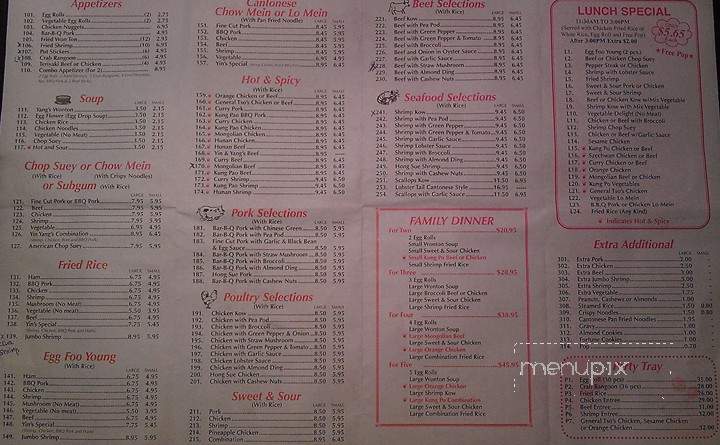 Appetizers
101. Egg Rolls (2) 2.75
102. Vegetable Egg Rolls (2) 2.75
103. Chicken Nuggets 6.95
104. Bar-B-Q Pork
105. Fried Won Ton
106. Fried Shrimp (10) 6.95
107. Pot Stickers
108. Crab Rangoons (6) 4.45
109. Teriyaki Beef or Chicken (4)
110. Combo Appetizer (For 2) 8.95
Soup
LARGE SMALL
111. Yang's Wonton 3.50 2.15
112. Egg Flower (Egg Drop Soup) 3.50 2.15
113. Chicken Rice 3.50 2.15
114. Chicken Noodles 3.50 2.15
115. Vegetable (No Meat) 3.50 2.15
116. Chop Suey 3.50 2.15
117. Hot and Sour 3.50 2.15
Chop Suey or Chow Mein
(With Rice) (With Crispy Noodles)
or Subgum (With Rice)
LARGE SMALL
121. Fine Cut Pork or BBQ Pork 7.95 5.95
122. Beef 7.95 5.95
123. Chicken 7.95 5.95
124. Shrimp 7.95 5.95
125. Vegetable 6.95 4.95
126. Yin Yang's Combination 8.95 6.45
127. American Chop Suey 7.95 5.95
Fried Rice
LARGE SMALL
131. Ham 6.75 4.95
132. BBQ Pork 6.75 4.95
133. Chicken 6.75 4.95
134. Shrimp 6.75 4.95
135. Mushroom (No Meat) 6.75 4.95
136. Vegetable (No meat) 5.50 3.95
137. Beef 6.75 4.95
138. Yin's Special 7.75 5.45
Shrimp, Chicken, BBQ Pork and Ham
139. Jumbo Shrimp 8.95 5.95
Egg Foo Young
(With Rice)
LARGE SMALL
141. Ham 6.75 4.95
142. BBQ Pork 6.75 4.95
143. Chicken 6.75 4.95
144. Shrimp 6.75 4.95
145. Mushroom (No Meat) 6.75 4.95
146. Vegetable (No meat) 5.50 4.95
147. Beef 6.75 4.95
148. Yin's Special 7.75 5.45
Shrimp, Chicken, BBQ Pork and Ham
149. Jumbo Shrimp 8.95 5.95
Cantonese
Chow Mein or Lo Mein
(With Pan Fried Noodles)
LARGE SMALL
151. Fine Cut Pork 8.95 6.45
152. BBQ Pork 8.95 6.45
153. Chicken 8.95 6.45
154. Beef 8.95 6.45
155. Shrimp 8.95 6.45
156. Vegetable 8.95 6.45
157. Yin's Special
Hot & Spicy
(With Rice)
LARGE SMALL
159. Orange Chicken or Beef 8.95 6.45
160. General Tso's Chicken or Beef 8.95 6.45
161. Curry Pork 8.95 6.45
162. Kung Pao BBQ Pork 8.95 6.45
163. Curry Chicken 8.95 6.45
164. Kung Pao Chicken 8.95 6.45
165. Mongolian Chicken 8.95 6.45
166. Hunan Chicken 8.95 6.45
167. Hunan Beef 8.95 6.45
168. Yin & Yang's Beef 8.95 6.45
169. Curry Beef 8.95 6.45
170. Mongolian Beef 8.95 6.45
171. Kung Pao Beef 8.95 6.45
172. Curry Shrimp 9.45 6.50
173. Kung Pao Shrimp 9.45 6.50
174. Hunan Shrimp 9.45 6.50
Pork Selections
(With Rice)
LARGE SMALL
181. Bar-B-Q Pork with Chinese Green 8.50 5.95
182. Bar-B-Q Pork with Pea Pod 8.50 5.95
183. Fine Cut Pork with Garlic & Black Bean
& Egg Sauce 8.50 5.95
184. Bar-B-Q Pork with Straw Mushroom 8.50 5.95
185. Bar-B-Q Pork with Broccoli 8.50 5.95
186. Bar-B-Q Pork with Almond Ding 8.50 5.95
187. Hong Sue Pork 8.50 5.95
188. Bar-B-Q Pork with Cashew Nuts 8.50 5.95
Poultry Selections
(With Rice)
LARGE SMALL
191. Chicken Kow 8.50 5.95
192. Chicken with Pea Pod 8.50 5.95
193. Chicken with Broccoli 8.50 5.95
194. Chicken with Green Pepper & Onion 8.50 5.95
195. Chicken with Straw Mushroom 8.50 5.95
196. Chicken with Green Pepper & Tomato 8.50 5.95
197. Chicken with Garlic Sauce 8.50 5.95
198. Chicken Lobster Sauce 8.50 5.95
199. Chicken with Almond Ding 8.50 5.95
200. Hong Sue Chicken 8.50 5.95
201. Chicken with Cashew Nuts 8.50 5.95
Sweet & Sour
(With Rice)
LARGE SMALL
211. Pork 8.50 5.95
212. Chicken 8.50 5.95
213. Shrimp 8.50 5.95
214. Pineapple Chicken 8.50 5.95
215. Combination 8.95 6.45
Beef Selections
(With Rice)
221. Beef Kow 8.95 6.45
222. Beef with Pea Pod 8.95 6.45
223. Beef with Green Pepper 8.95 6.45
224. Beef with Green Pepper & Tomato 8.95 6.45
225. Beef with Broccoli 8.95 6.45
226. Beef and Onion in Oyster Sauce 8.95 6.45
227. Beef with Garlic Sauce 8.95 6.45
228. Beef with Straw Mushroom 8.95 6.45
229. Beef with Almond Ding 8.95 6.45
230. Beef with Cashew Nuts 8.95 6.45
Seafood Selections
(With Rice)
LARGE SMALL
241. Shrimp Kow 9.45 6.50
242. Shrimp with Pea Pod 9.45 6.50
243. Shrimp with Green Pepper 9.45 6.50
244. Shrimp with Green Pepper & Tomato 9.45 6.50
245. Shrimp with Garlic Sauce 9.45 6.50
246. Shrimp Lobster Sauce 9.45 6.50
247. Shrimp with Broccoli 9.45 6.50
248. Shrimp with Almond Ding 9.45 6.50
249. Hong Sue Shrimp 9.45 6.50
250. Shrimp with Cashew Nuts 9.45 6.50
251. Scallops Kow 11.50 6.95
253. Lobster Tail Cantonese Style 16.95
254. Scallops with Garlic Sauce 11.50 6.95
FAMILY DINNER
For Two $20.95
2 Egg Rolls
Small Wonton Soup
Small Sweet & Sour Chicken
Small Kung Pao Beef or Chicken
Small Shrimp Fried Rice
For Three $28.95
3 Egg Rolls
Large Wonton Soup
Large Broccoli Beef or Chicken
Large Sweet & Sour Chicken
Large Shrimp Fried Rice
For Four $38.95
4 Egg Rolls
Large Wonton Soup
Large Mongolian Beef
Large Sweet & Sour Chicken
Large Orange Chicken
Large Combination Fried Rice
For Five $49.95
5 Egg Rolls
Large Wonton Soup
Large Orange Chicken
Large Shrimp Kow
Large Kung Pao Combination
Large Sweet & Sour Chicken
Large Combination Fried Rice
LUNCH SPECIAL
11:30AM TO 3:00PM
(Served with Chicken Fried Rice or
White Rice, Egg Roll and Free Pop)
After 3:00PM Extra $2.00
$5.65
Free Pop
L1. Egg Foo Young (2 pcs.)
L2. Beef or Chicken Chop Suey
L3. Pepper Steak or Chicken
L4. Shrimp with Lobster Sauce
L5. Fried Shrimp
L6. Sweet & Sour Pork or Chicken
L7. Sweet & Sour Shrimp
L8. Beef or Chicken Kow w/Mix Vegetable
L9. Shrimp Kow with Mix Vegetable
L10. Vegetable Delight (No Meat)
L11. Chicken or Beef with Broccoli
L12. Shrimp Chop Suey
L13. Chicken or Beef w/Garlic Sauce
L14. Sesame Chicken
L15. Kung Pao Chicken or Beef
L16. Szechwan Chicken or Beef
L17. Curry Chicken or Beef
L18. Orange Chicken
L19. Mongolian Beef or Chicken
L20. Kung Po Vegetables
L21. General Tso's Chicken
L22. Vegetable Lo Mein
L23. B.B.Q. Pork or Chicken Lo Mein
L24. Fried Rice (Any Kind)
Indicates Hot & Spicy
Extra Additional
LARGE SMALL
301. Extra Pork 2.00
302. Extra Chicken 2.00
303. Extra Beef 3.00
304. Extra Jumbo Shrimp
305. Extra Shrimp 2.50
306. Extra Vegetable 1.75
307. Peanuts, Cashews or Almonds 1.00
308. Steamed Rice 1.50 0.80
309. Crispy Noodles 1.50 0.80
310. Cantonese Pan Fried Noodles 1.95
311. Gravy 1.00
312. Almond Cookies
313. Fortune Cookies
314. Hot Tea
menupix
Party Tray
P1. Egg Roll (30 pc) 35.00
P2. Crab Rangoon (36 pc) 28.00
P3. Fried Rice 26.00
P4. Chicken Entree 29.00
P5. Beef Entree 31.00
P6. Shrimp Entree 32.00
P7. General Tso's Chicken, Sesame Chicken
or Orange Chicken 32.00